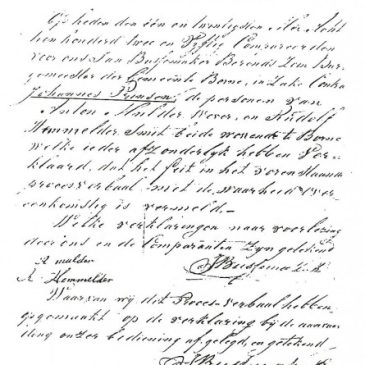 Op heden den één en twintigsten Mei Acht
tien honderd twee en Vyftig Compareerden
voor ons Jan Bussemaker Berends Zoon Bur
gemeester der Gemeente Borne, in zake Contra
Johannes de personen van
Anton Mulder Wever, en Rudolf
Hemmelder, Smit beide wonende te Borne
welke ieder afzonderlyk hebben Ver-
klaard, dat het feit in het voren staande
procesverbaal met de waarheid over
eenkomstig is vermeld.-
Welke verklaringen naar voorlezing
door ons en de Comparanten zyn getekend
A mulder
R Hemmelder
JBussemaker
Waarvan wij dit Proces-verbaal hebben
opgemaakt op de verklaring bij de aanvaar
ding onzer bediening afgelegd, en getekend-
JBussemaker